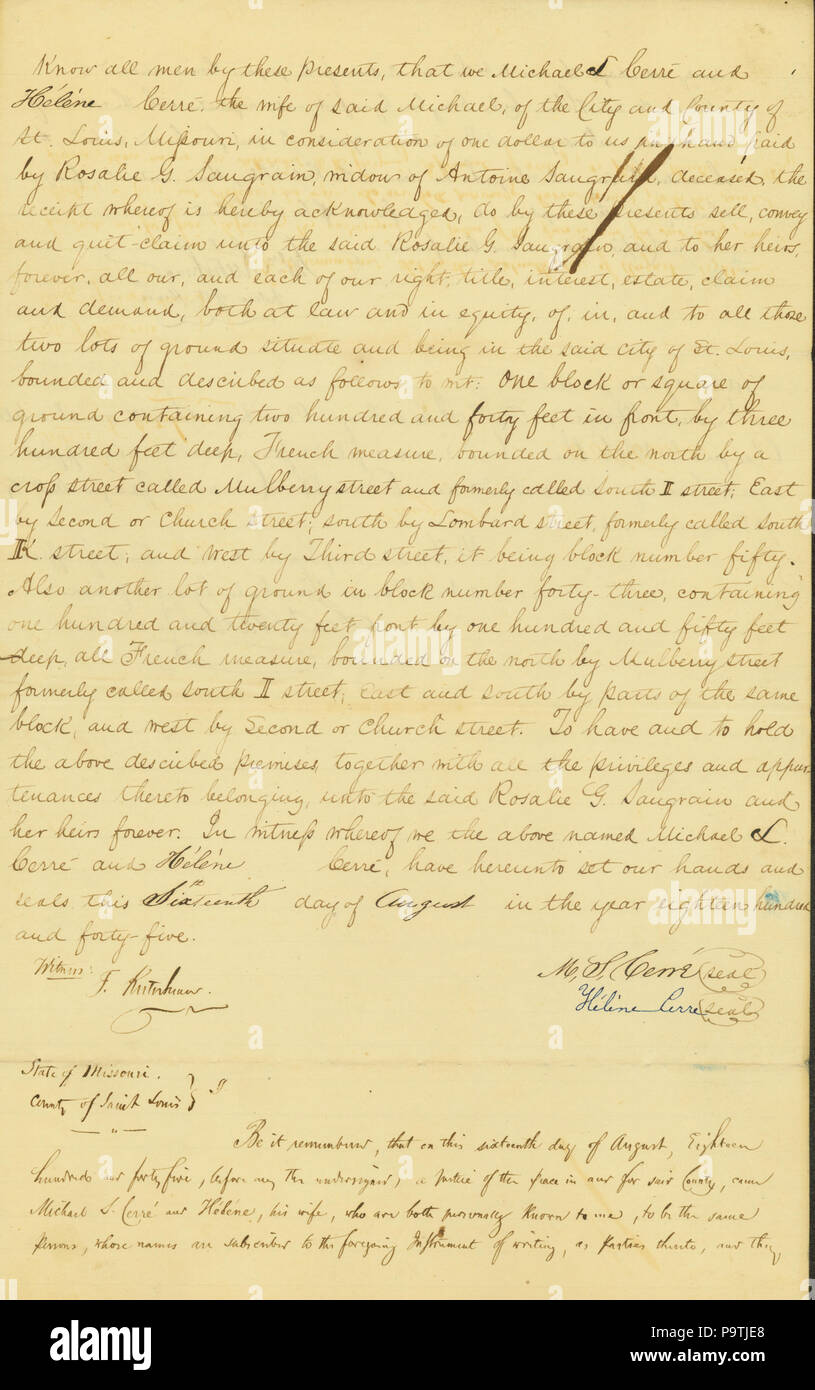 Know all men by these presents, that we Michael S Cerré and
Héléne Cerré, the wife of said Michael, of the City and County of
St. Louis, Missouri, in consideration of one dollar to us in hand paid
by Rosalie G. Saugrain, widow of Antoine Saugrain, deceased, the
receipt whereof is hereby acknowledged, do by these presents sell, convey
and quit-claim unto the said Rosalie G. Saugrain, and to her heirs,
forever, all our, and each of our right, title, interest, estate, claim
and demand, both at law and in equity, of, in, and to all those
two lots of ground situate and being in the said city of St. Louis,
bounded and described as follows to wit: One block or square of
ground containing two hundred and forty feet in front, by three
hundred feet deep, French measure, bounded on the north by a
cross street called Mulberry street and formerly called South II street; East
by Second or Church street; south by Lombard street, formerly called south
K street; and West by Third street, it being block number fifty.
Also another lot of ground in block number forty-three, containing
one hundred and twenty feet front by one hundred and fifty feet
deep, all French measure, bounded on the north by Mulberry street
formerly called south II street; East and south by parts of the same
block, and west by Second or Church street. To have and to hold
the above described premises, together with all the privileges and appur-
tenances thereto belonging, unto the said Rosalie G. Saugrain and
her heirs forever. In witness whereof we the above named Michael S.
Cerré and Héléne Cerré, have hereunto set our hands and
seals this Sixteenth day of August in the year eighteen hundred
and forty-five.
Witness: M, S, Cerré seal
F. Héléne Cerré seal
State of Missouri.
County of Saint Louis
Be it remembered, that on this sixteenth day of August, Eighteen
hundred and forty five, before me, the undersigned, a Justice of the peace in and for said County, came
Michael S. Cerré and Héléne, his wife, who are both personally known to me, to be the same
persons, whose names are subscribed to the foregoing Instrument of writing, as parties thereto, and they
alamy
Image ID: P9TJE8
www.alamy.com